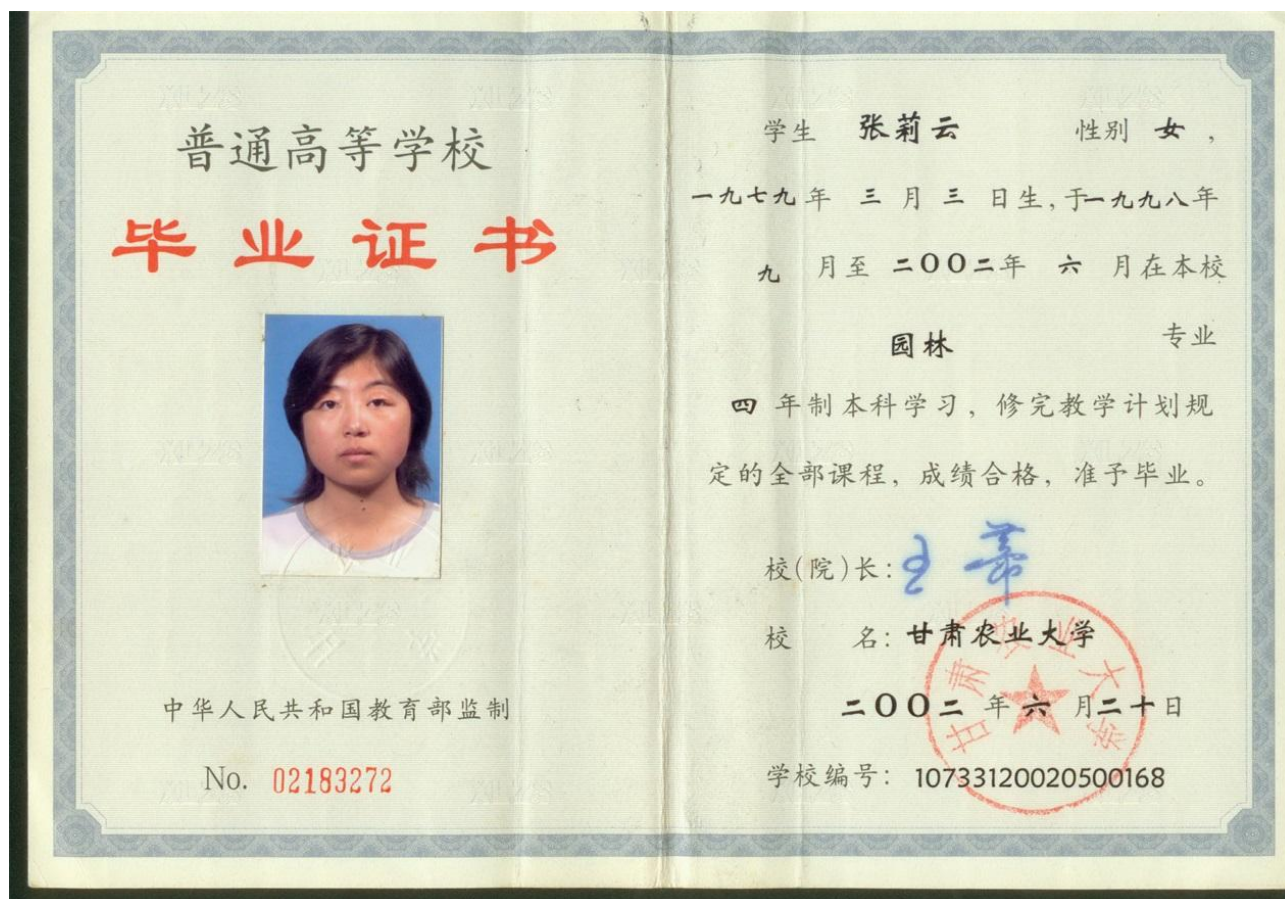 普通高等学校
毕业证书
中华人民共和国教育部监制
No. 02183272
学生 张莉云 性别 女，
一九七九年 三月三日生，于一九九八年
九月至二〇〇二年 六月在本校
园林 专业
四年制本科学习，修完教学计划规
定的全部课程，成绩合格，准予毕业。
校(院)长：王蒂
校 名：甘肃农业大学
二〇〇二年六月二十日
学校编号：10733120020500168
甘肃农业大学